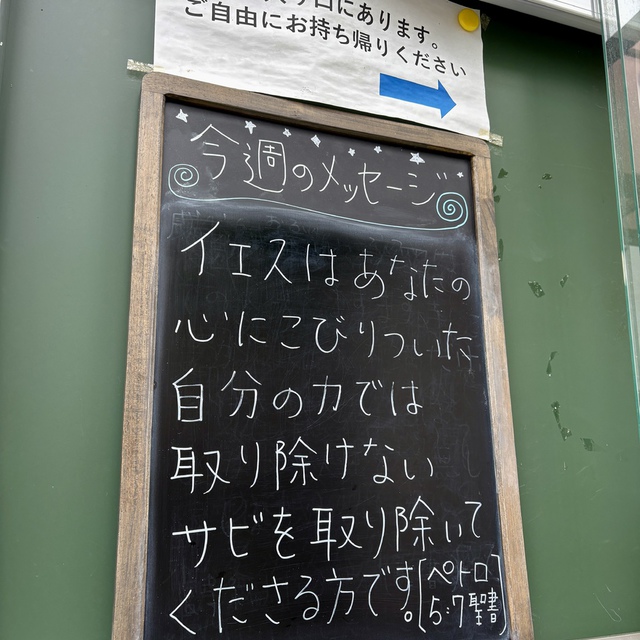 口にあります。
ご自由にお持ち帰りください
今週のメッセージ
イエスはあなたの
心にこびりついた
自分の力では
取り除けない
サビを取り除いて
くださる方です。
[ペトロ
5:7聖書]